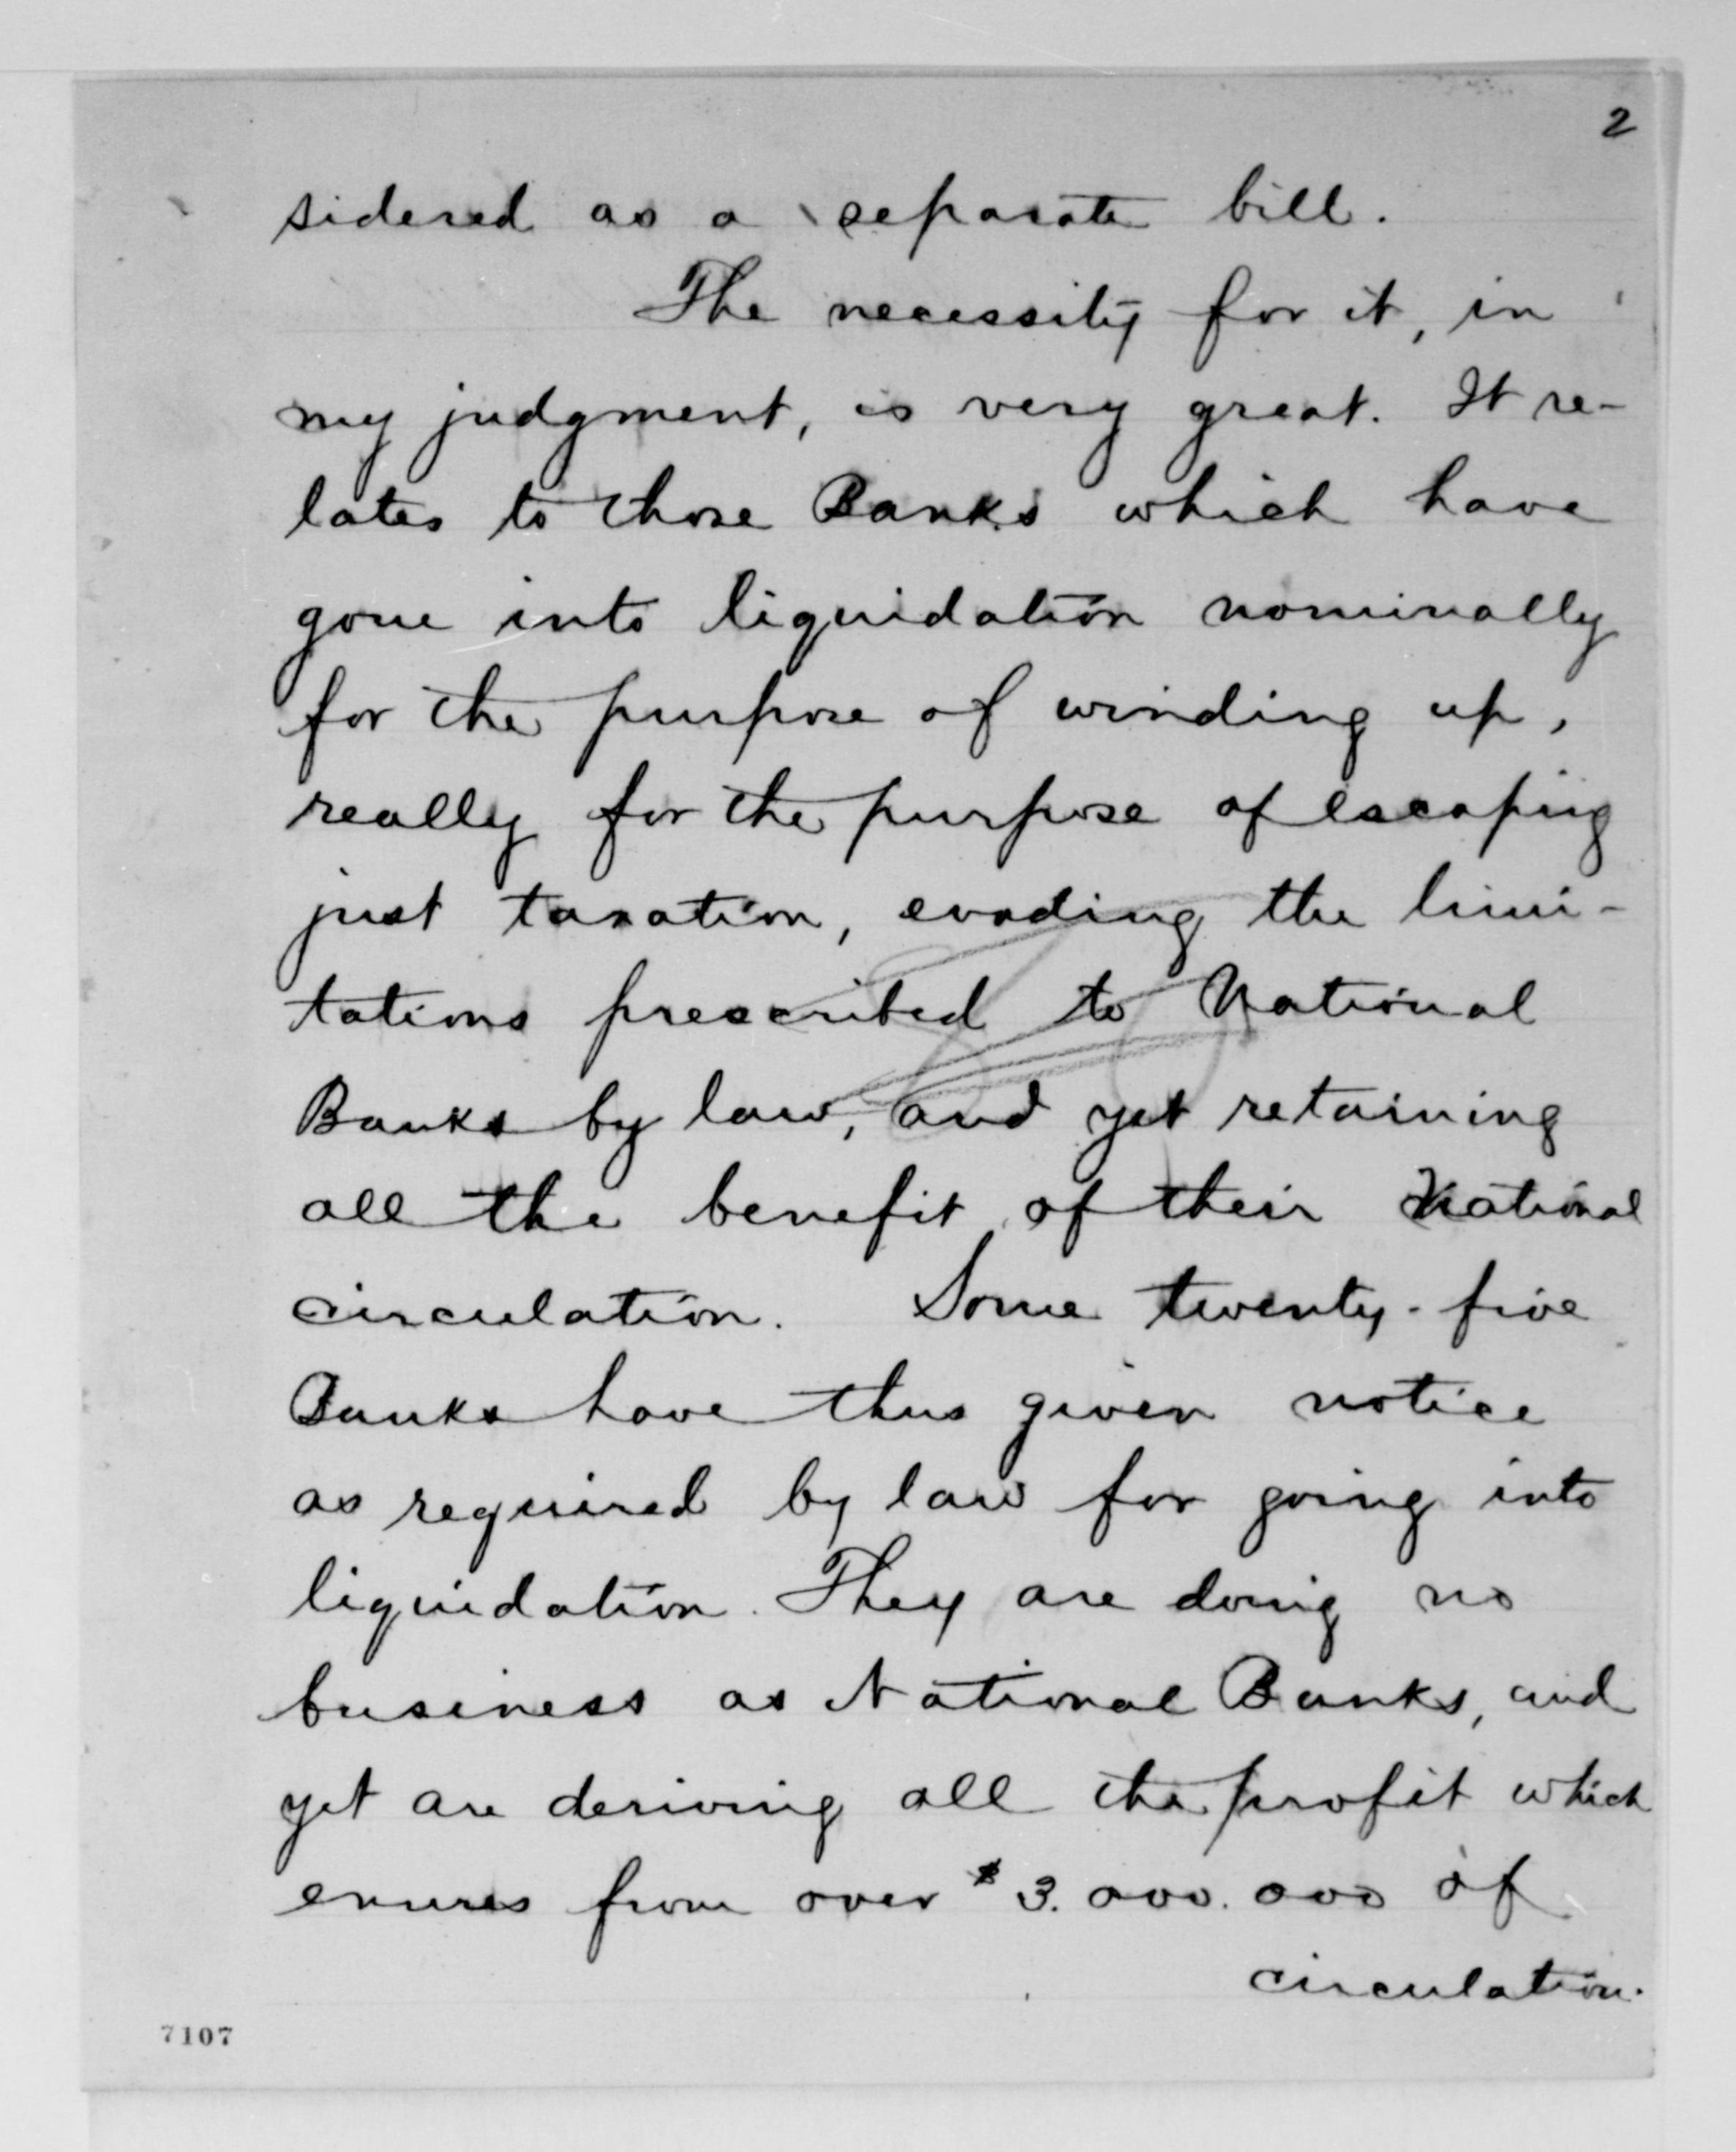 2
sidered as a separate bill.
The necessity for it, in
my judgment, is very great. It re-
lates to those Banks which have
gone into liquidation nominally
for the purpose of winding up,
really for the purpose of escaping
just taxation, evading the limi-
tations prescribed to National
Banks by law, and yet retaining
all the benefit of their National
circulation. Some twenty-five
Banks have thus given notice
as required by law for going into
liquidation. They are doing no
business as National Banks, and
yet are deriving all the profit which
enures from over $3.000.000 of
circulation.
7107